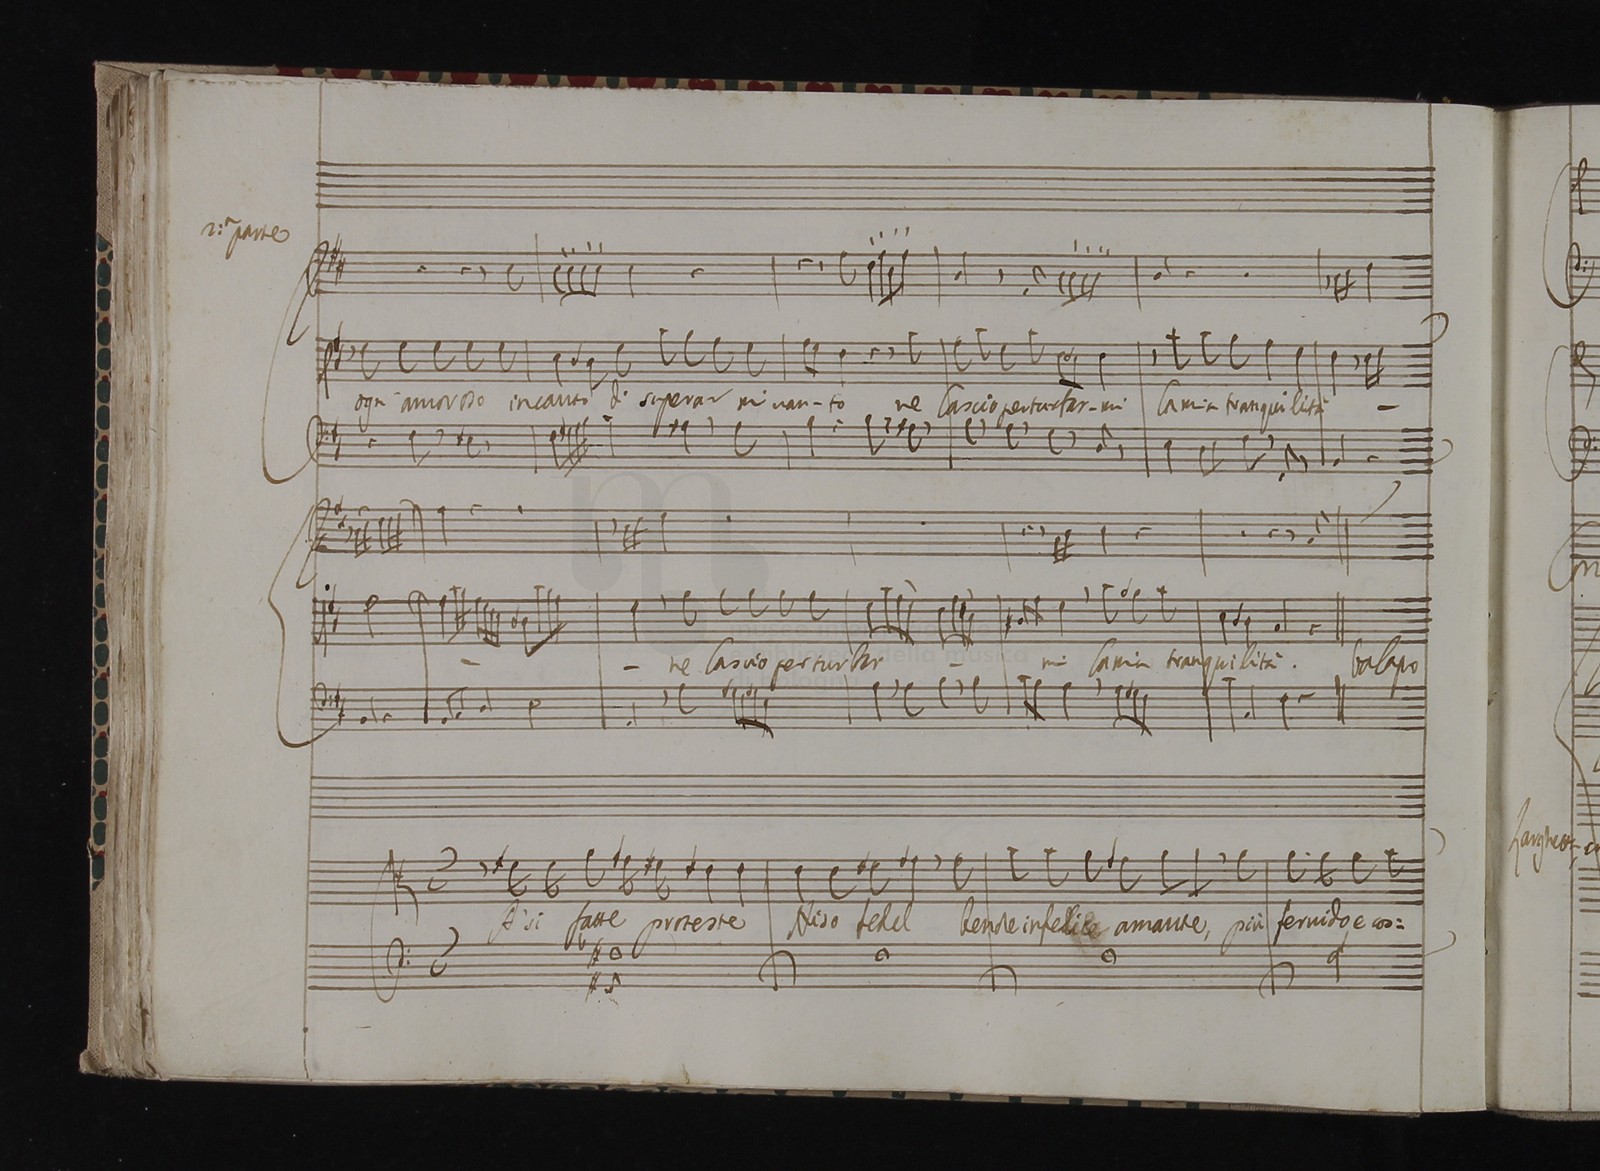 2:a parte
ogn' amoroso incanto di superar mi van-to ne lascio perturbar-mi la mia tranquilità -
- - ne lascio perturbar - mi la mia tranquilità. Da Capo
A' si fatte proteste Niso fedel rende infelice amante, più fervido e cos=
museo internazionale
e biblioteca della musica
di bologna
Larghett